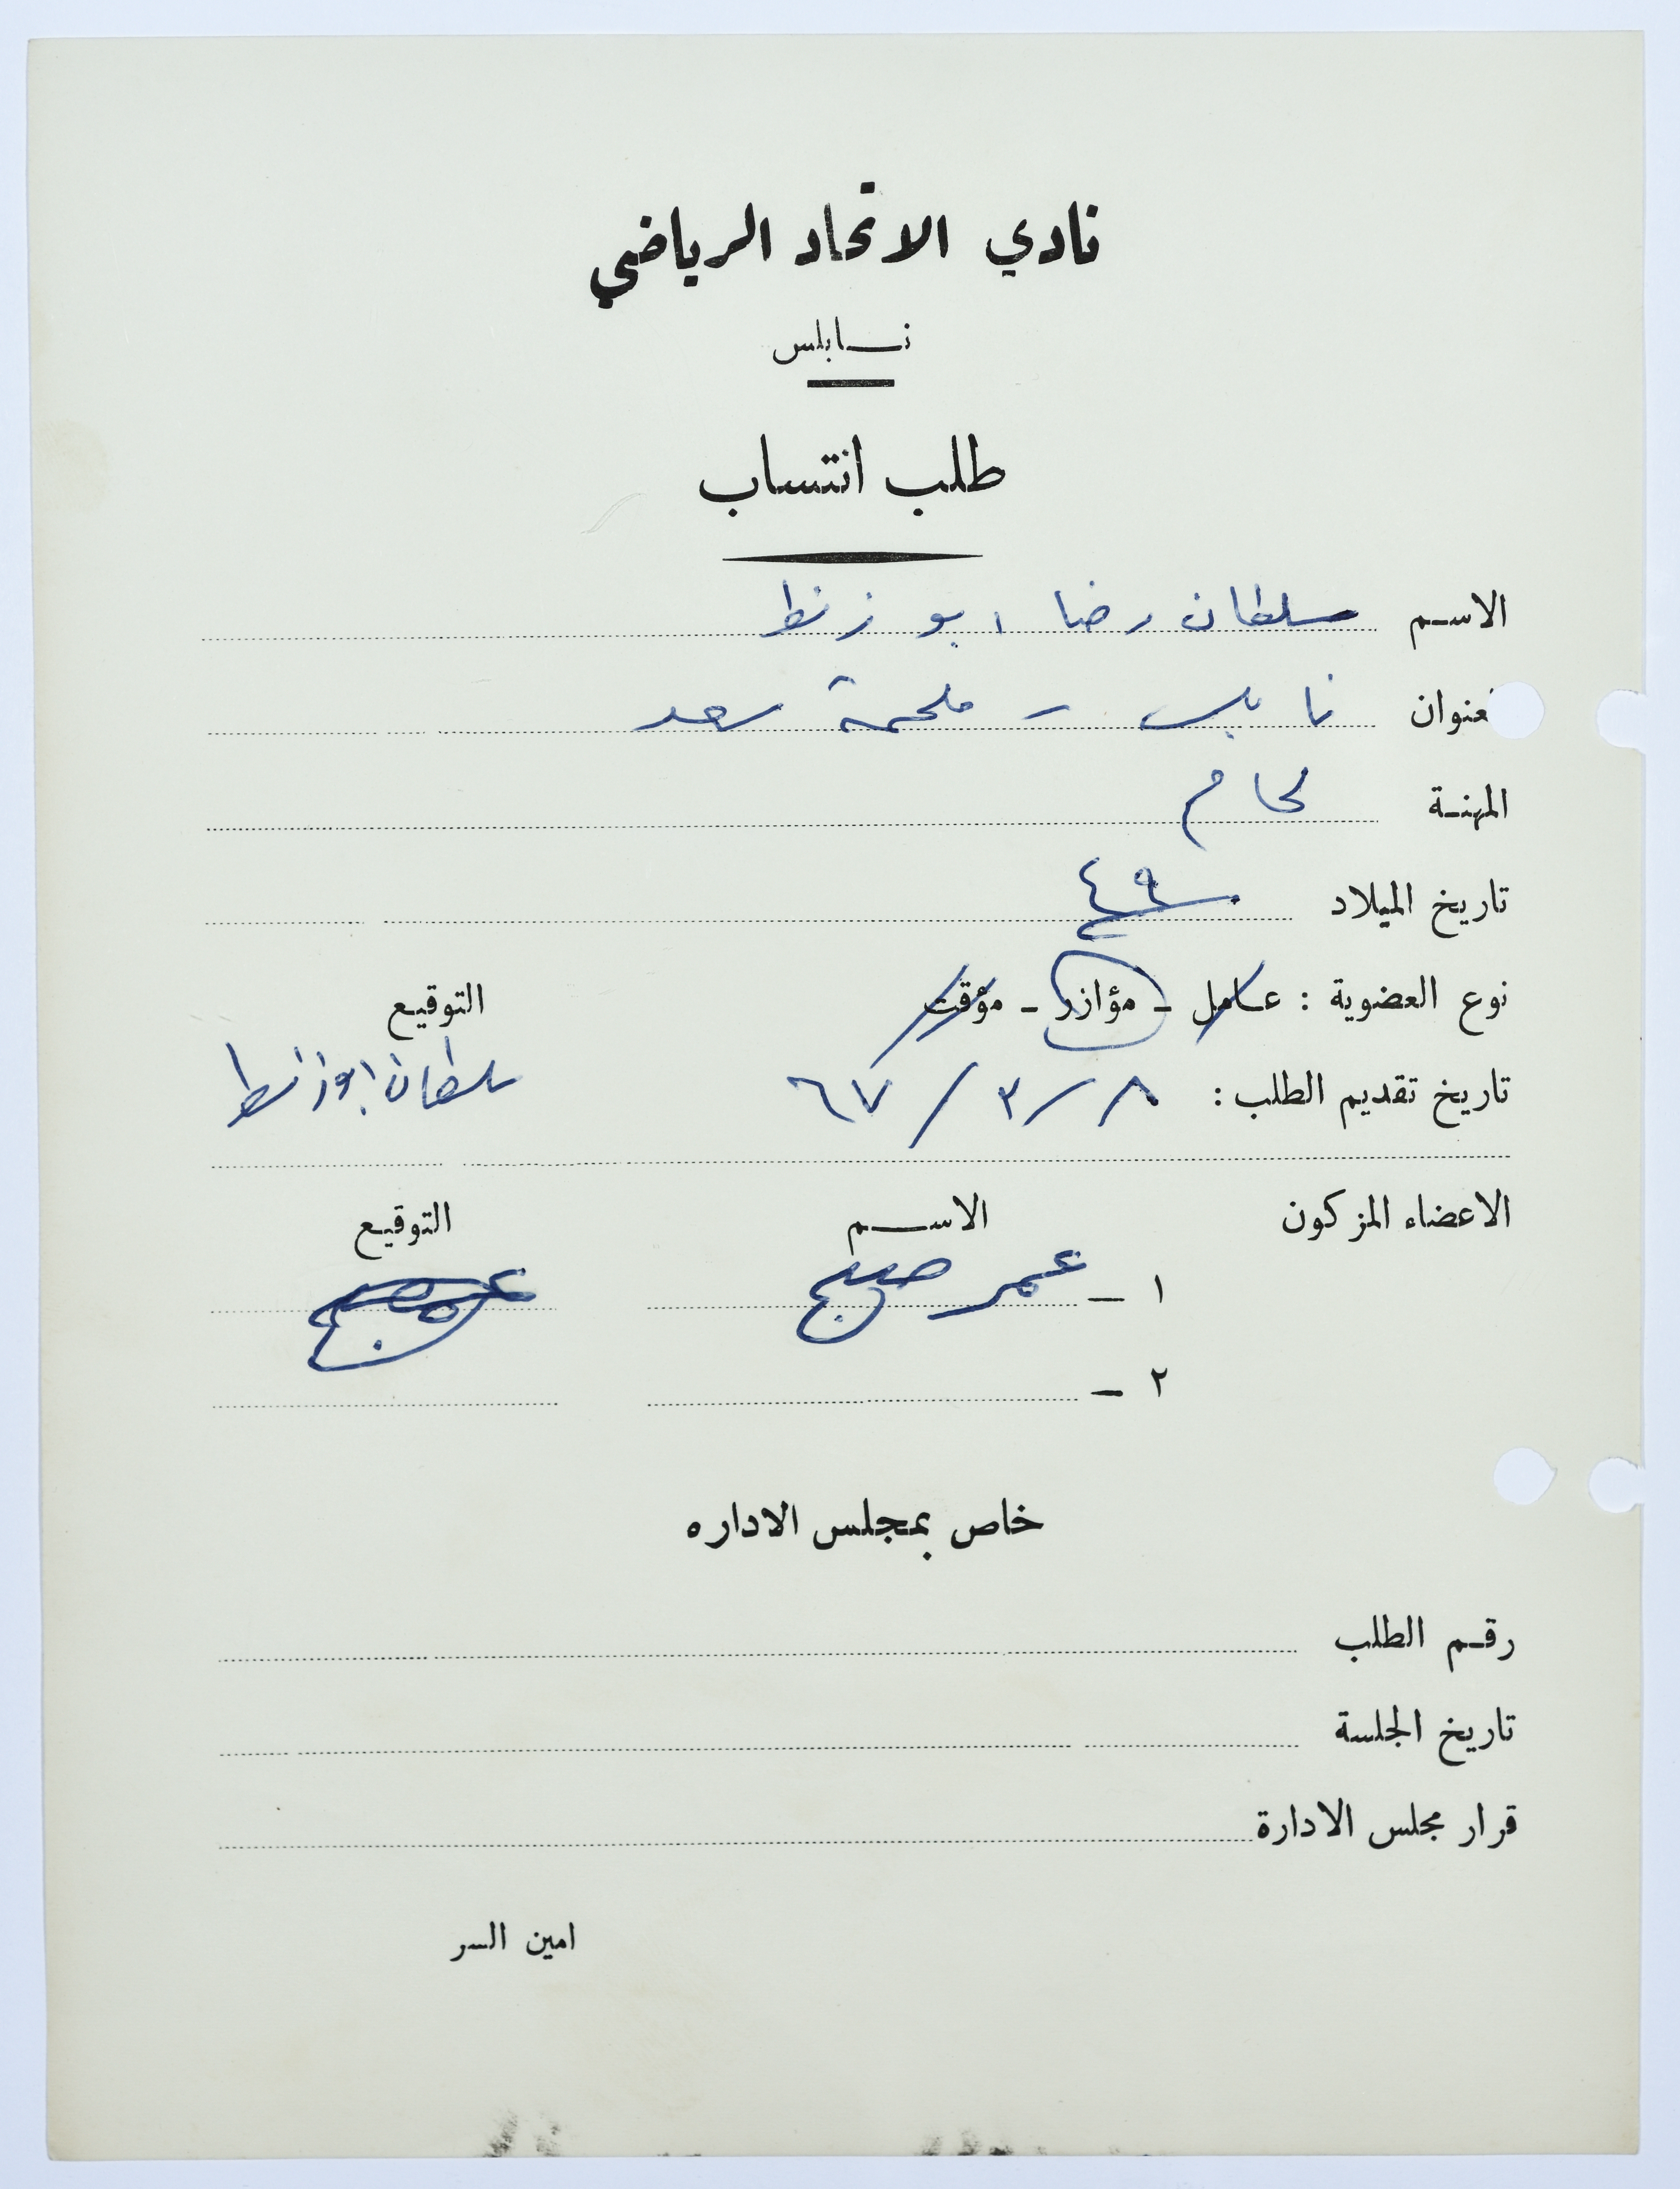 نادي الاتحاد الرياضي
نابلس
طلب انتساب
الاسم سلطان رضا ابو زنط
عنوان نابلس - ملحمة سعد
المهنة لحام
تاريخ الميلاد ٤٩
نوع العضوية : عامل - مؤازر - مؤقت التوقيع
تاريخ تقديم الطلب : ٨ / ٣ / ٦٧ سلطان ابوزنط
الاعضاء المزكون الاسم التوقيع
١ - عمر صبح
٢ -
خاص بمجلس الاداره
رقم الطلب
تاريخ الجلسة
قرار مجلس الادارة
امين السر